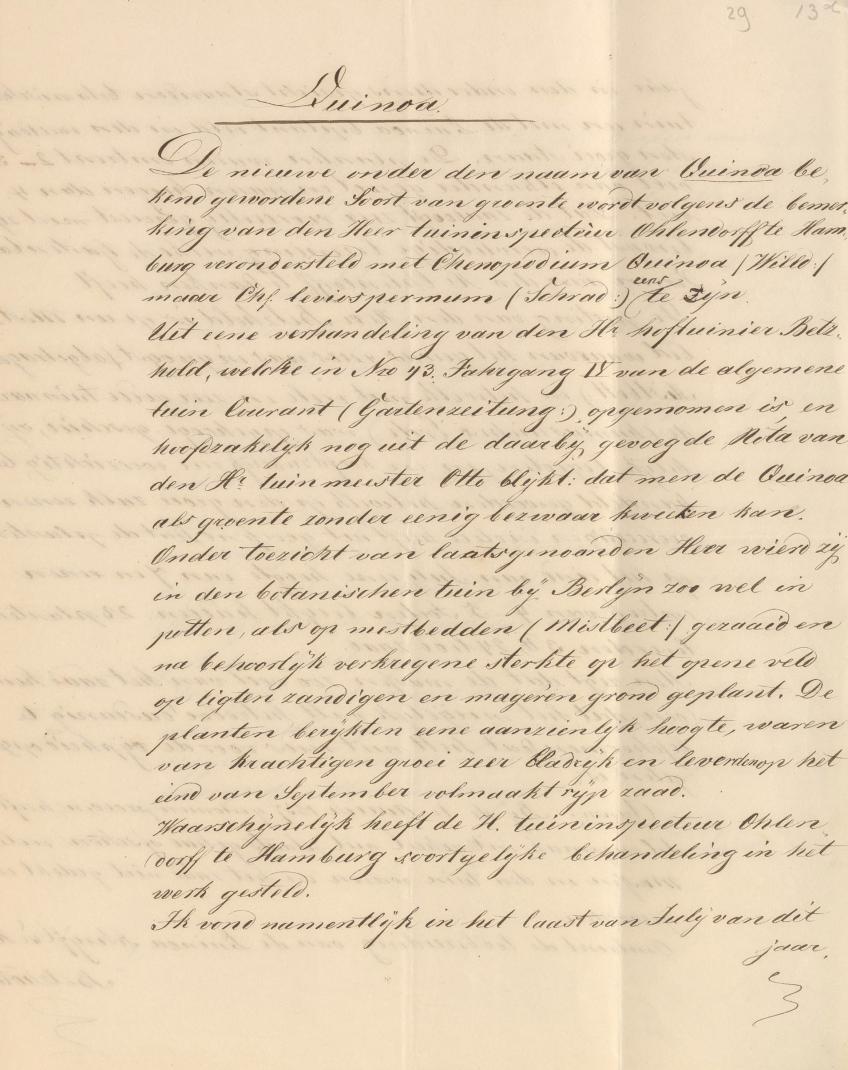 29 13
Quinoa.
De nieuwe onder den naam van Quinoa be,
kend gewordene Soort van groente wordt volgens de bemer,
king van den Heer tuininspecteur Ohlendorff te Ham,
burg verondersteld met Chenopodium Quinoa / Willd:/
eens
maar Ch. leviospermum (Schrad:) te zijn.
Uit eene verhandeling van den Hr hoftuinier Betz,
hold, welcke in Nro 43. Jahrgang IV van de algemene
tuin Courant (Gartenzeitung:) opgenomen is, en
hoofdzakelyk nog uit de daarbij gevoegde Nota van
den Hr tuinmeister Otto blijkt: dat men de Quinoa
als groente zonder eenig bezwaar kweeken kan.
Onder toezicht van laatsgenoanden Heer wierd zij
in den botanischen tuin bij Berlijn zoo wel in
potten, als op mestbedden (Mistbeet:/ gezaaid en
na behoorlijk verkregene sterkte op het opene veld
op ligten zandigen en mageren grond geplant. De
planten berijkten eene aanzienlijk hoogte, waren
van krachtigen groei zeer bladrijk en leverden op het
eind van September volmaakt rijp zaad.
Waarschijnelijk heeft de H. tuininspecteur Ohlen
dorff te Hamburg soortgelijke behandeling in het
werk gesteld.
Ik vond namentlijk in het laast van Julij van dit
jaar,